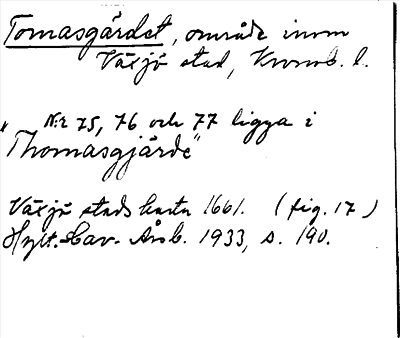 Tomasgärdet, område inom
Växjö stad, Kronob. l.
"Nr 75, 76 och 77 ligga i
Thomasgjärde"
Växjö stads karta 1661. (fig. 17)
Hylt.-Cav. Årsb. 1933, s. 190.